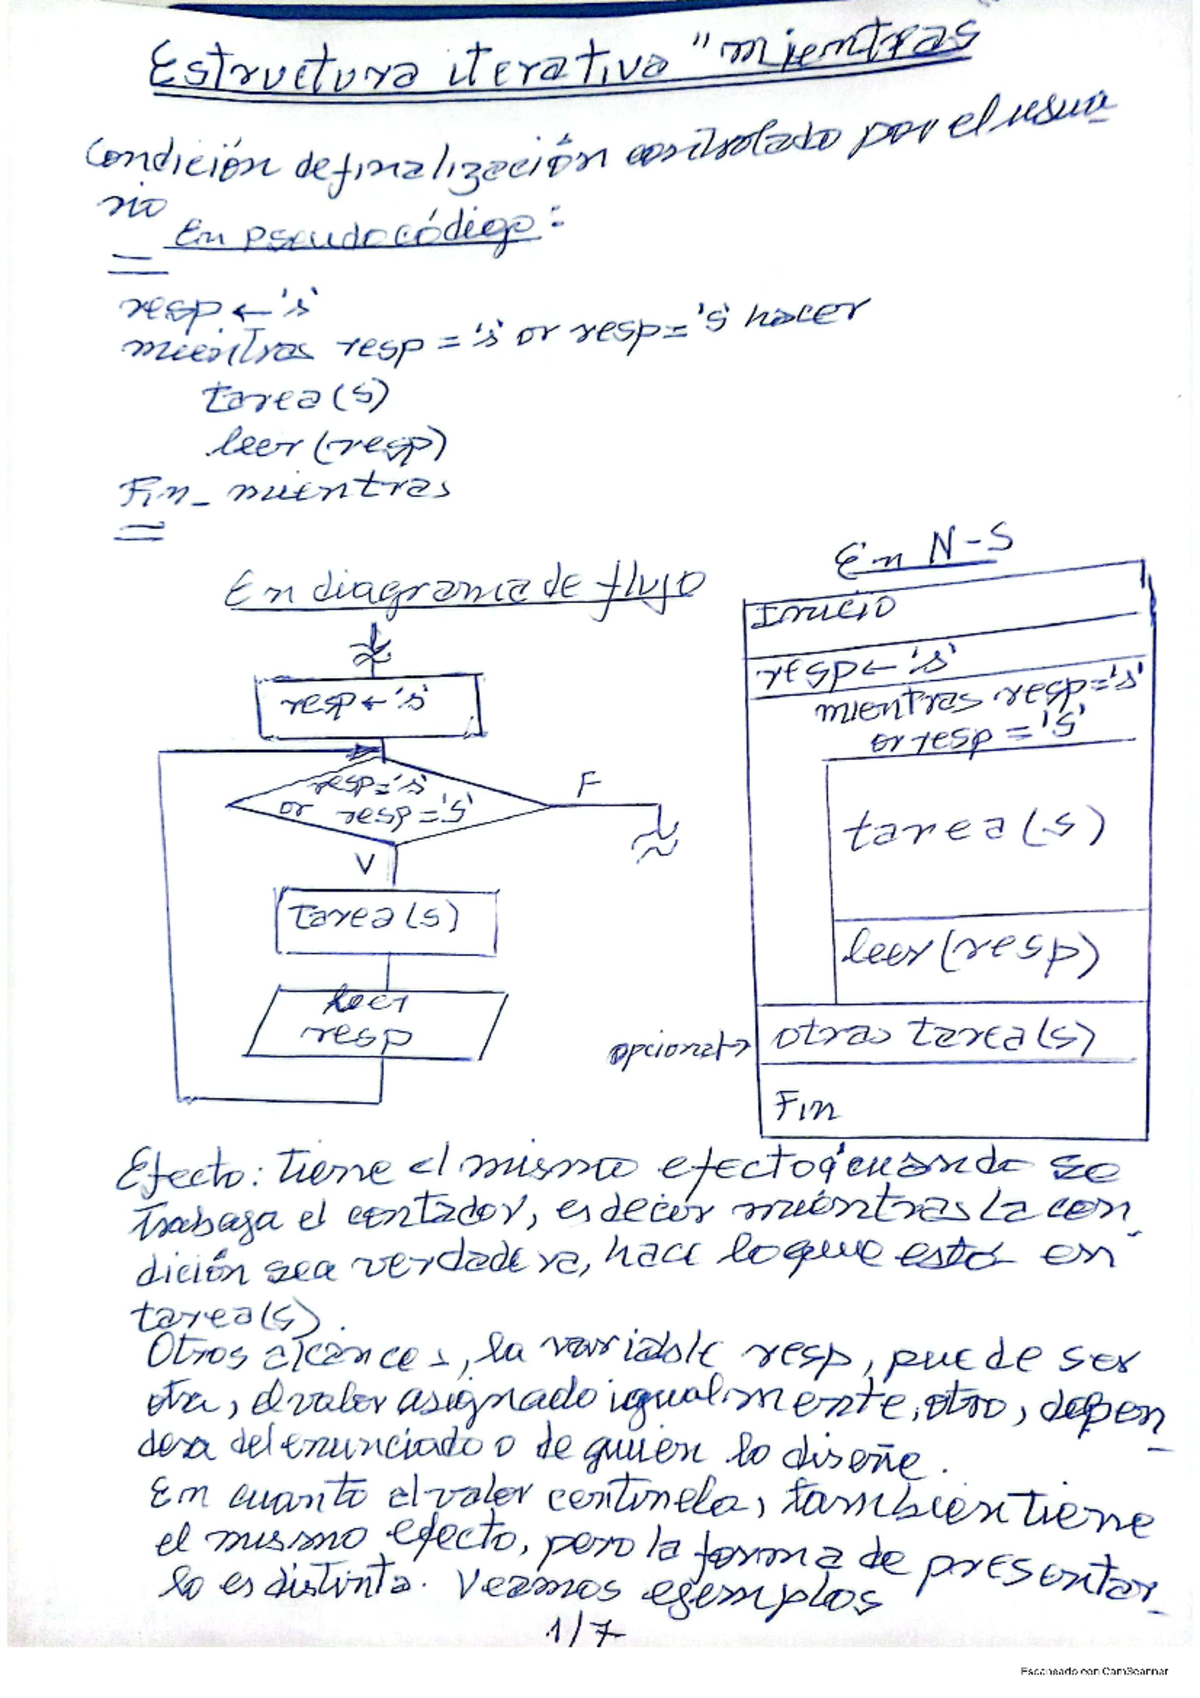 Estructura iterativa "mientras
Condición de finalización controlado por el usua-
rio
En pseudocódigo:
resp ← 's'
mientras resp = 's' or resp = 'S' hacer
tarea(s)
leer (resp)
Fin_ mientras
En diagrama de flujo
resp ← 's'
resp = 's'
or resp = 'S'
F
V
tarea(s)
leer
resp
En N-S
Inicio
resp ← 's'
mientras resp = 's'
or resp = 'S'
tarea(s)
leer (resp)
opcional → otras tarea(s)
Fin
Efecto: tiene el mismo efecto q' cuando se
trabaja el contador, es decir mientras la con-
dición sea verdadera, hace lo que está en
tarea(s).
Otros alcances, la variable resp, puede ser
otra, el valor asignado igualmente, otro, depen-
dera del enunciado o de quien lo diseñe.
En cuanto al valor centinela, también tiene
el mismo efecto, pero la forma de presentar-
lo es distinta. Veamos ejemplos
1/7
Escaneado con CamScanner